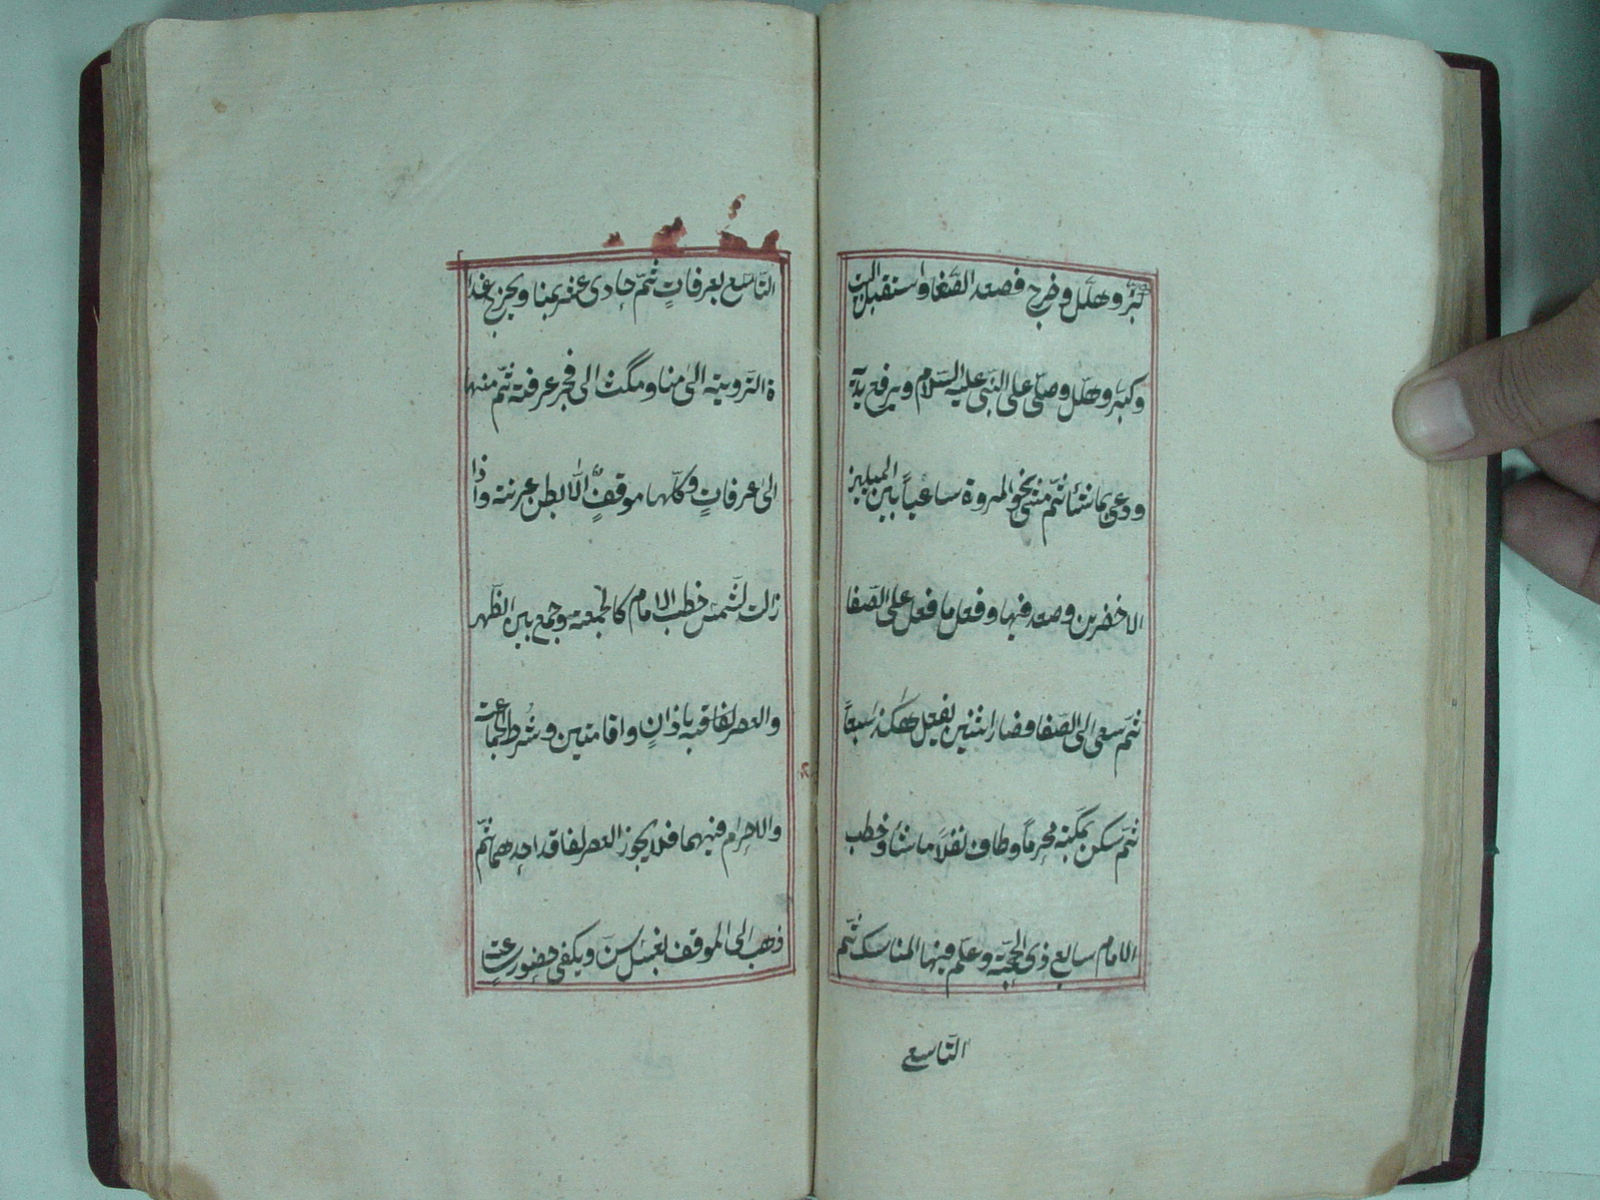 كبّر وهلّل وخرج فصعد الصّفا واستقبل البيت
وكبّر وهلّل وصلّى على النّبى عليه السّلام ويرفع يديه
ودعى بما شأ ثمّ مشى نحو المروة ساعياً بين الميلين
الاخضرين وصعد فيها وفعل ما فعل على الصّفا
ثمّ سعى الى الصّفا وصار اثنين يفعل هكذا سبعاً
ثمّ سكن بمكّة محرماً وطاف نفلاً ما شأ وخطب
الامام سابع ذى الحجّة وعلّم فيها المناسك ثمّ
التّاسع
التّاسع بعرفاتٍ ثمّ حادى عشر بمنا ويخرج غدا
ة التّروية الى منا ومكث الى فجر عرفة ثمّ منها
الى عرفاتٍ وكلّها موقفٌ الّا بطن عرنة واذا
زالت الشّمش خطب الامام كالجمعة وجمع بين الظّهر
والعصر باذانٍ واقامتين وشُرط الجماعت
والاحرام فيهما فلا يجوز العصر لفاقد احدهما ثمّ
ذهب الى الموقف بغسل سنّ ويكفى حضور ساعت